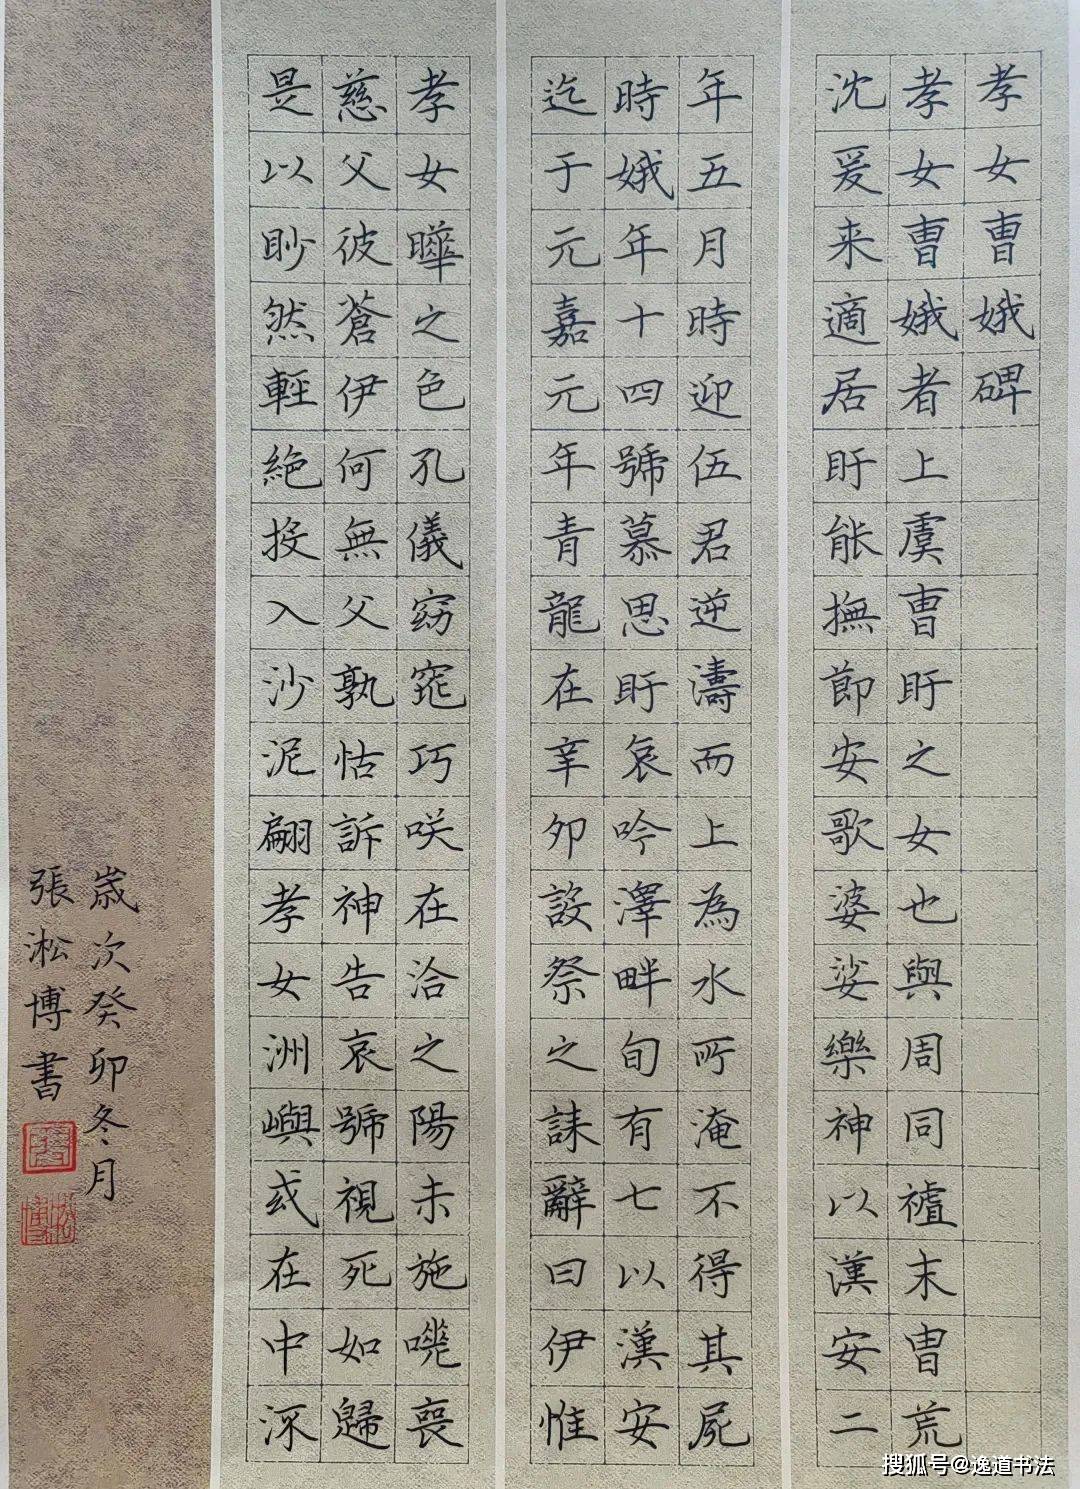 孝女曹娥碑
孝女曹娥者上虞曹盱之女也與周同末冑荒
沈爰来適居盱能撫節安歌婆娑樂神以漢安二
年五月時迎伍君逆濤而上為水所淹不得其屍
時娥年十四號慕思盱哀吟澤畔旬有七以漢安
迄于元嘉元年青龍在辛卯設祭之誄辭曰伊惟
孝女曄之色孔儀窈窕巧咲在洽之陽未施嘅喪
慈父彼蒼伊何無父孰怙訴神告哀號視死如歸
是以眇然輕絕投入沙泥翩孝女洲嶼或在中流
歲次癸卯冬月
張淞博書
搜狐号@逸道书法